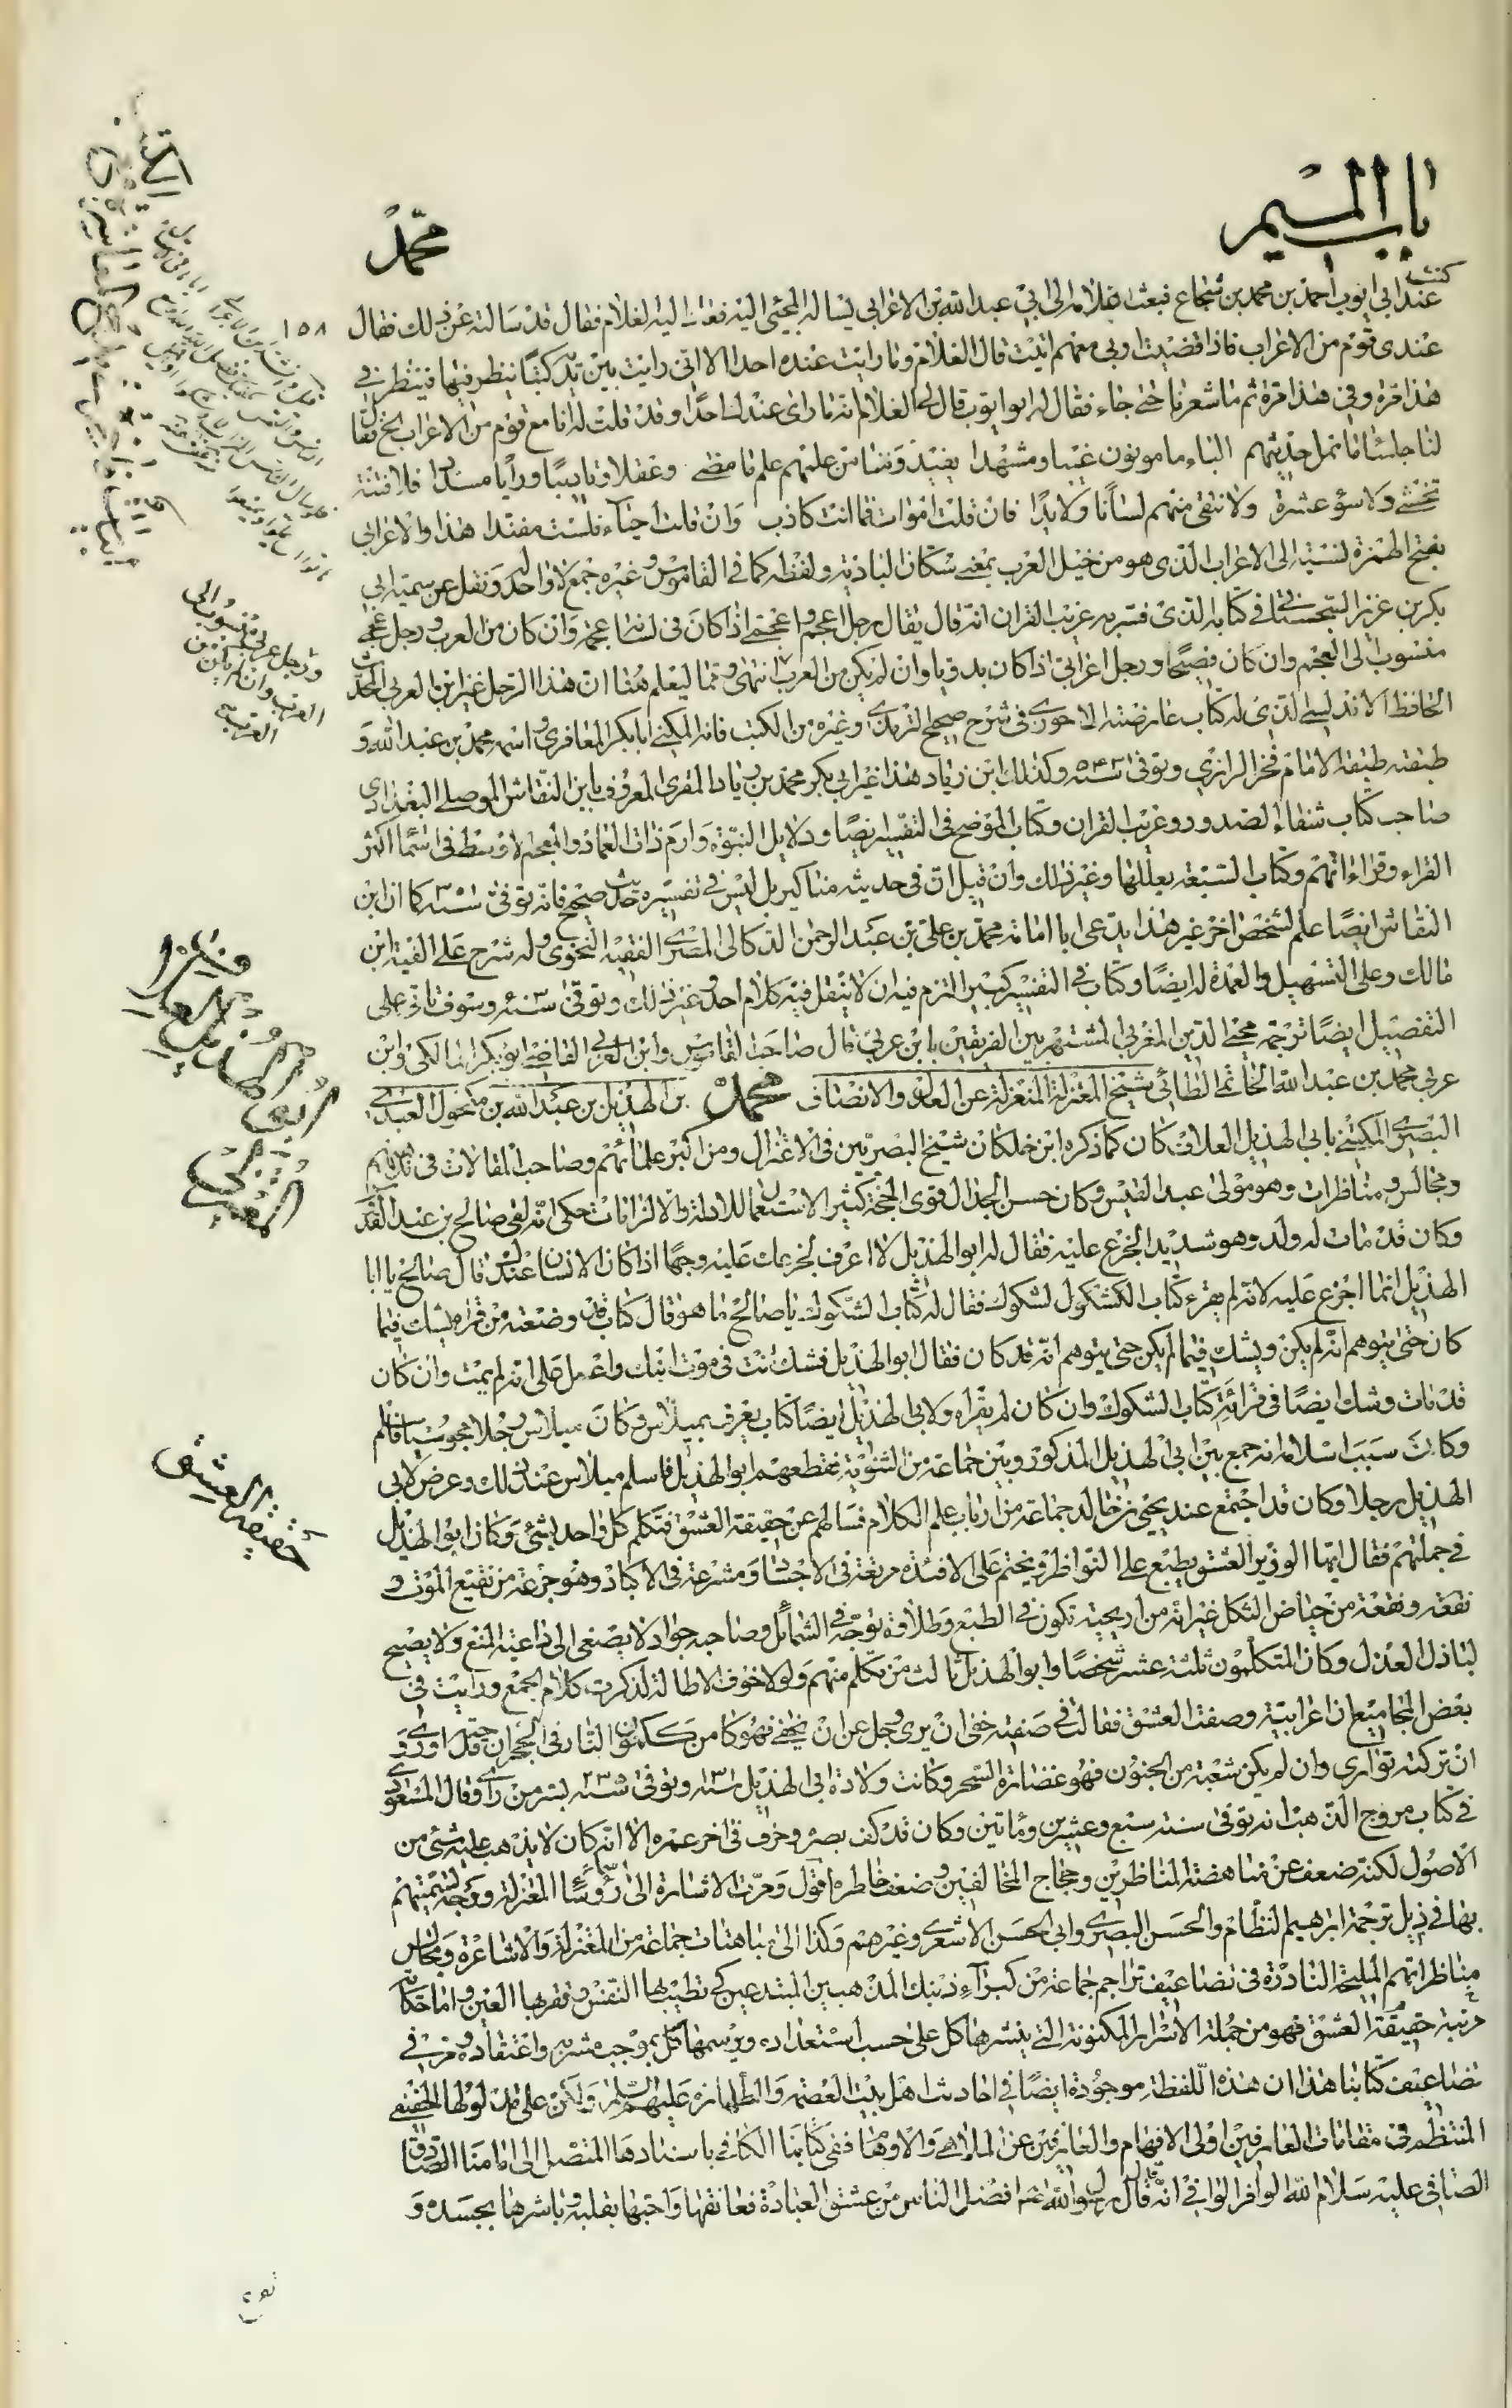 باب الميم
محمّد
١٥٨
كنت عند ابي ايوب احمد بن محمد بن شجاع فبعث غلامه الى ابي عبد الله بن الاعرابي يساله المجئى اليه فعاد اليه الغلام فقال قد سالته عن ذلك فقال
عندى قوم من الاعراب فاذا قضيت اربى معهم اتيت قال الغلام وما رايت عنده احدا الا انى رايت بين يديه كتبا ينظر فيها فينظر في
هذا مرة وفى هذا مرة ثم ما شعرنا حتى جاء فقال له ابو ايوب قال لى الغلام انه ما راى عندك احدا وقد قلت له انا مع قوم من الاعراب الخ فقال
لنا جلساء ما نمل حديثهم الباء مامونون غيبا ومشهدا يفيدوننا من علمهم علم ما مضى وعقلا وتاديبا ورايا مسددا فلا فتنة
تخشى ولا سؤ عشرة ولا نتقى منهم لسانا ولا يدا فان قلت اموات فما انت كاذب وان قلت احياء فلست مفندا هذا والاعرابي
بفتح الهمزة لنسبته الى الاعراب الذى هو من خيل العرب بمعنى سكان البادية ولفظه كما فى القاموس وغيره جمع لا واحد له ونقل عن سميه ابي
بكر بن عزيز السجستاني فى كتابه الذى فسر به غريب القران انه قال يقال رجل اعجم واعجمى اذا كان فى لسانه عجمة وان كان من العرب ورجل عجمى
منسوب الى العجم وان كان فصيحا ورجل اعرابى اذا كان بدويا وان لم يكن من العرب انتهى ومما ليعلم هنا ان هذا الرجل غير ابن العربى المحدث
الحافظ الاندلسى الذى له كتاب عارضة الاحوذى فى شرح صحيح الترمذى وغيره من الكتب فانه المكنى ابا بكر المعافرى واسمه محمد بن عبد الله و
طبقته طبقة الامام فخر الرازى وتوفى ٥٤٣ سنة وكذلك ابن زياد هذا غير ابى بكر محمد بن زياد المقرى المعروف بابن النقاش الموصلى البغدادى
صاحب كتاب شفاء الصدور وغريب القران وكتاب الموضح فى التفسير ايضا ودلايل النبوة وارم ذات العماد والمعجم الاوسط فى اسماء اكثر
القراء وقراءاتهم وكتاب السبعة بعللها وغير ذلك وان قيل ان فى حديثه مناكير بل ليس فى تفسيره حديث صحيح فانه توفى ٣٥١ سنة كما ان ابن
النقاش ايضا علم لشخص اخر غير هذا يدعى بابا امامة محمد بن على بن عبد الرحمن الدكالى المصرى الفقيه النحوى وله شرح على الفية ابن
مالك وعلى التسهيل والعمدة له ايضا وكتاب فى التفسير كبير التزم فيه ان لا ينقل فيه كلام احد وغير ذلك وتوفى سنة وسوف تاتى على
التفصيل ايضا ترجمة محيى الدين المغربى المشتهر بين الفريقين بابن عربى قال صاحب القاموس وابن العربى القاضى ابو بكر المالكى وابن
عربى محمد بن عبد الله الحاتمى الطائى شيخ المعتزلة المنعزلة عن العدل والانصاف محمد بن الهذيل بن عبد الله بن مكحول العبدى
البصرى المكنى بابى الهذيل العلاف كان كما ذكره ابن خلكان شيخ البصريين فى الاعتزال ومن اكبر علمائهم وصاحب المقالات فى مذهبهم
ومجالس ومناظرات وهو مولى عبد القيس وكان حسن الجدال قوى الحجة كثير الاستعمال للادلة والالزامات حكى انه لقى صالح بن عبد القدوس
وكان قد مات له ولد وهو شديد الجزع عليه فقال له ابو الهذيل لا اعرف لجزعك عليه وجها اذا كان الانسان عندك قال صالح يا ابا
الهذيل انما اجزع عليه لانه لم يقرء كتاب الشكوك فقال له كتاب الشكوك يا صالح ما هو قال كتاب قد وضعته من قراه يشك فيما
كان حتى يتوهم انه لم يكن ويشك فيما لم يكن حتى يتوهم انه قد كان فقال ابو الهذيل فشك انت فى موت ابنك واعمل على انه لم يمت وان كان
قد مات وشك ايضا فى قرائة كتاب الشكوك وان كان لم يقراه ولابى الهذيل ايضا كتاب يعرف بميلاس وكان ميلاس رجلا مجوسيا فاسلم
وكان سبب اسلامه انه جمع بين ابى الهذيل المذكور وبين جماعة من الثنوية فقطعهم ابو الهذيل فاسلم ميلاس عند ذلك وعرض لابى
الهذيل رجلا وكان قد اجتمع عند يحيى بن خالد جماعة من ارباب علم الكلام فسالهم عن حقيقة العشق فتكلم كل واحد بشئ وكان ابو الهذيل
فى جملتهم فقال ايها الوزير العشق يطبع على النواظر ويختم على الافئدة مرتعه فى الاجساد ومشرعه فى الاكباد وهو جرعة من نقيع الموت و
نقعة من حياض الثكل غير انه من اريحية تكون فى الطبع وطلاوة توجد فى الشمائل وصاحبه جواد لا يصغى الى داعية المنع ولا يصيح
لنازل العذل وكان المتكلمون ثلثة عشر شخصا وابو الهذيل ثالث من تكلم منهم ولولا خوف الاطالة لذكرت كلام الجميع ورايت فى
بعض المجاميع ان اعرابية وصفت العشق فقالت فى صفته خفى ان يرى وجل عن ان يخفى فهو كامن ككمون النار فى الحجر ان قدحته اورى و
ان تركته توارى وان لم يكن شعبة من الجنون فهو عصارة السحر وكانت ولادة ابى الهذيل ١٣١ سنة وتوفى ٢٣٥ سنة بسر من راى وقال المسعودى
فى كتاب مروج الذهب انه توفى سنة سبع وعشرين ومأتين وكان قد كف بصره وخرف فى اخر عمره الا انه كان لا يذهب عليه شئ من
الاصول لكنه ضعف عن مناهضة المناظرين وحجاج المخالفين وضعف خاطره اقول وقد مرت الاشارة الى رؤساء المعتزلة ووجه تسميتهم
بها فى ذيل ترجمة ابرهيم النظام والحسن البصرى وابى الحسن الاشعرى وغيرهم وكذا الى مباهتات جماعة من المعتزلة والاشاعرة ومجالس
مناظراتهم المليحة النادرة فى تضاعيف تراجم جماعة من كبراء ذينك المذهبين المبتدعين كى تطيب بها النفس وتقر بها العين واما حكاية
مرتبة حقيقة العشق فهو من جملة الاسرار المكنونة التى ينشرها كل على حسب استعداده ويرسمها كل بموجب مشربه واعتقاده ومر فى
تضاعيف كتابنا هذا ان هذه اللفظة موجودة ايضا فى احاديث اهل بيت العصمة والطهارة عليهم السلام ولكن على مدلولها الحقيقى
المنتظم فى مقامات العارفين اولى الافهام والعازفين عن الملاهى والاوهام ففى كتابنا الكافى باسنادها المتصل الى امامنا الصادق
الصافى عليه سلام الله الوافر الوافى انه قال قال رسول الله افضل الناس من عشق العبادة فعانقها واحبها بقلبه وباشرها بجسده و
ورجل عربى منسوب الى
العرب وان لم يكن من
العرب
حقيقة العشق